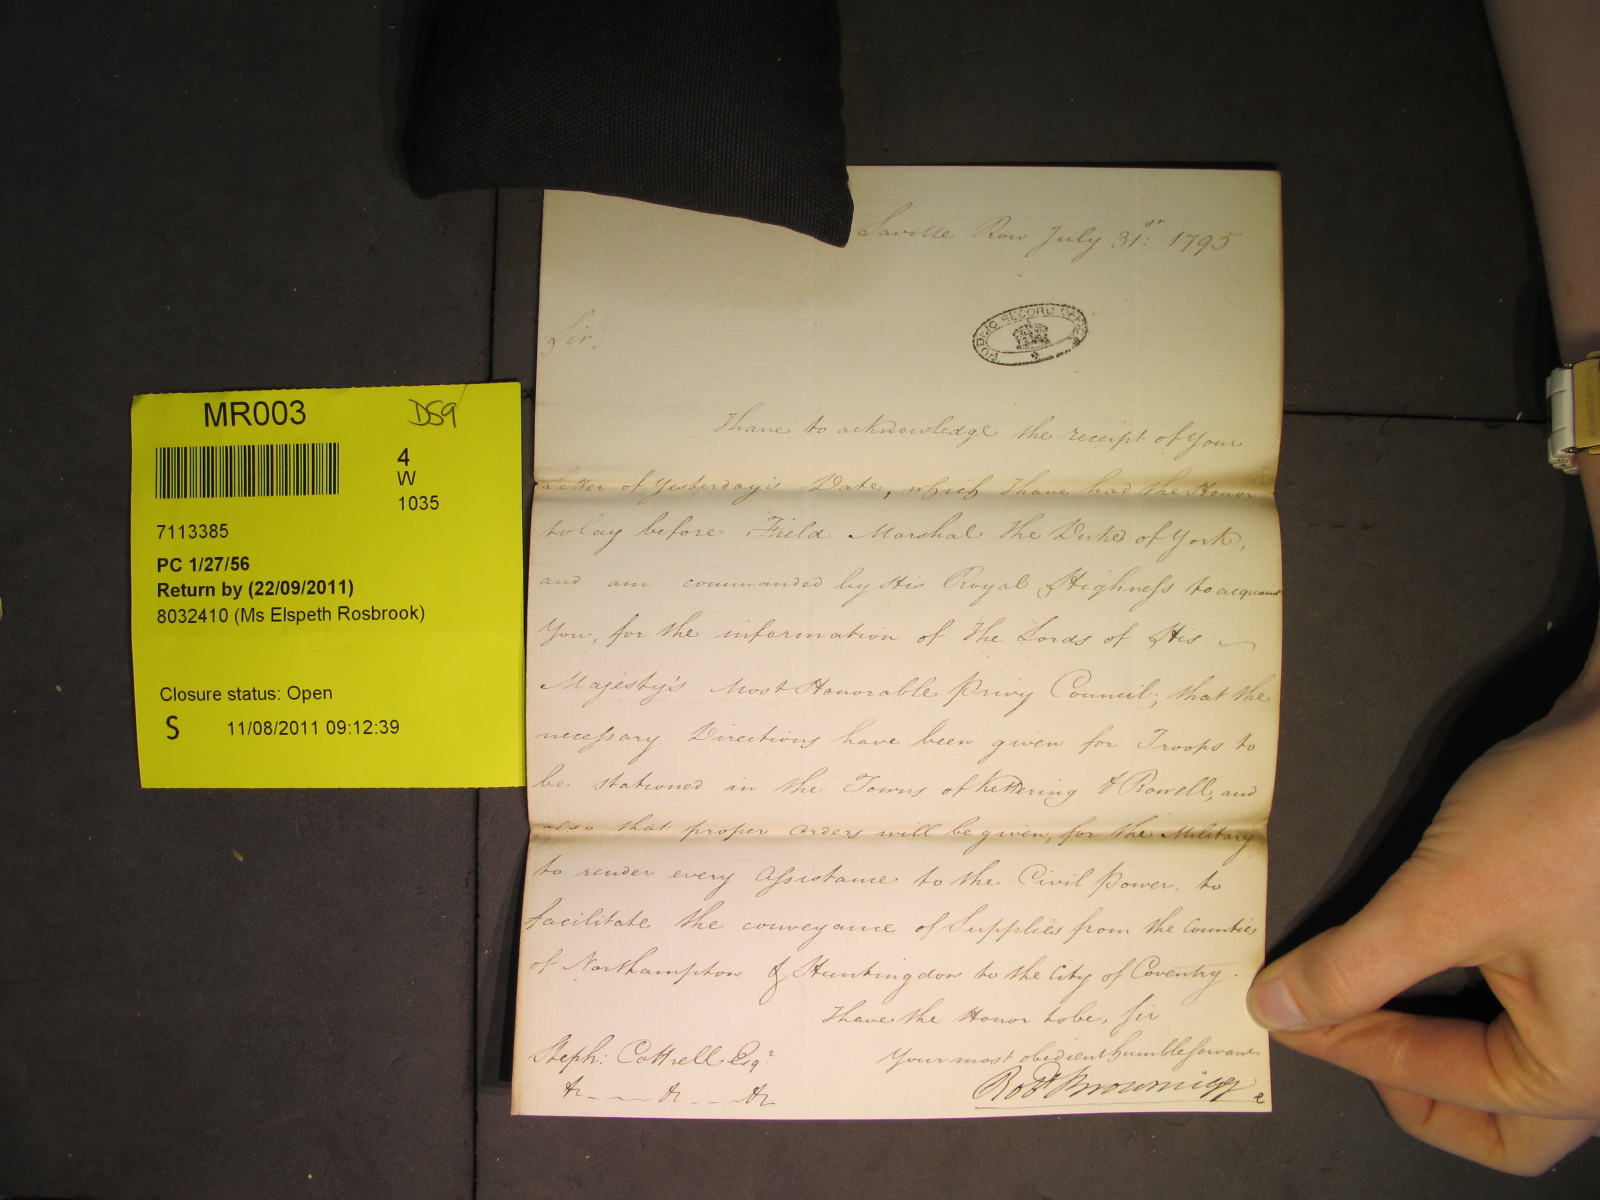 MR003
DS9
4
W
1035
7113385
PC 1/27/56
Return by (22/09/2011)
8032410 (Ms Elspeth Rosbrook)
Closure status: Open
S 11/08/2011 09:12:39
Saville Row July 31st: 1795
PUBLIC RECORD OFFICE
Sir,
I have to acknowledge the receipt of Your
Letter of Yesterday's Date, which I have had the Honor
to lay before Field Marshal The Duke of York,
and am commanded by His Royal Highness to acquaint
You, for the information of The Lords of His
Majesty's Most Honorable Privy Council; that the
necessary Directions have been given for Troops to
be stationed in the Towns of Kettering & Rowell, and
also that proper orders will be given, for the Military
to render every Assistance to the Civil Power, to
facilitate the conveyance of Supplies from the Counties
of Northampton & Huntingdon to the City of Coventry.
I have the Honor to be, Sir
Your most obedient humble Servant
Steph: Cottrell Esqr.
&c - - - &c - - - &c
Robt Brownrigg